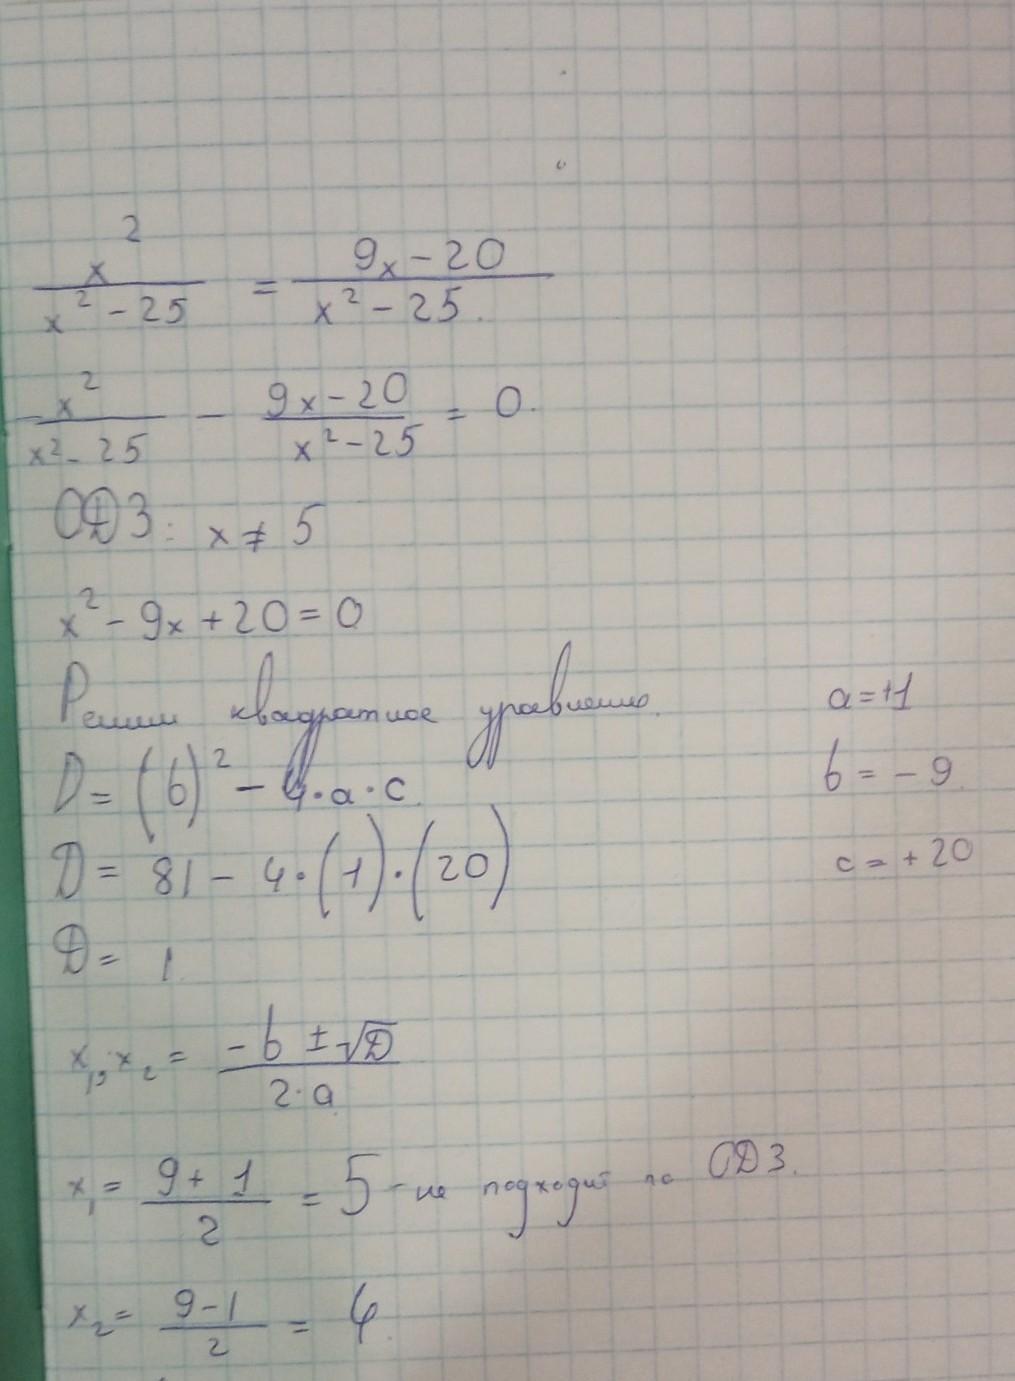 x² / (x² - 25) = (9x - 20) / (x² - 25).
x² / (x² - 25) - (9x - 20) / (x² - 25) = 0.
ОДЗ: x ≠ 5
x² - 9x + 20 = 0
Решим квадратное уравнение. a = +1
D = (b)² - 4·a·c. b = - 9.
D = 81 - 4·(1)·(20) c = + 20
D = 1.
x₁, x₂ = (-b ± √D) / (2·a)
x₁ = (9 + 1) / 2 = 5 - не подходит по ОДЗ.
x₂ = (9 - 1) / 2 = 4.